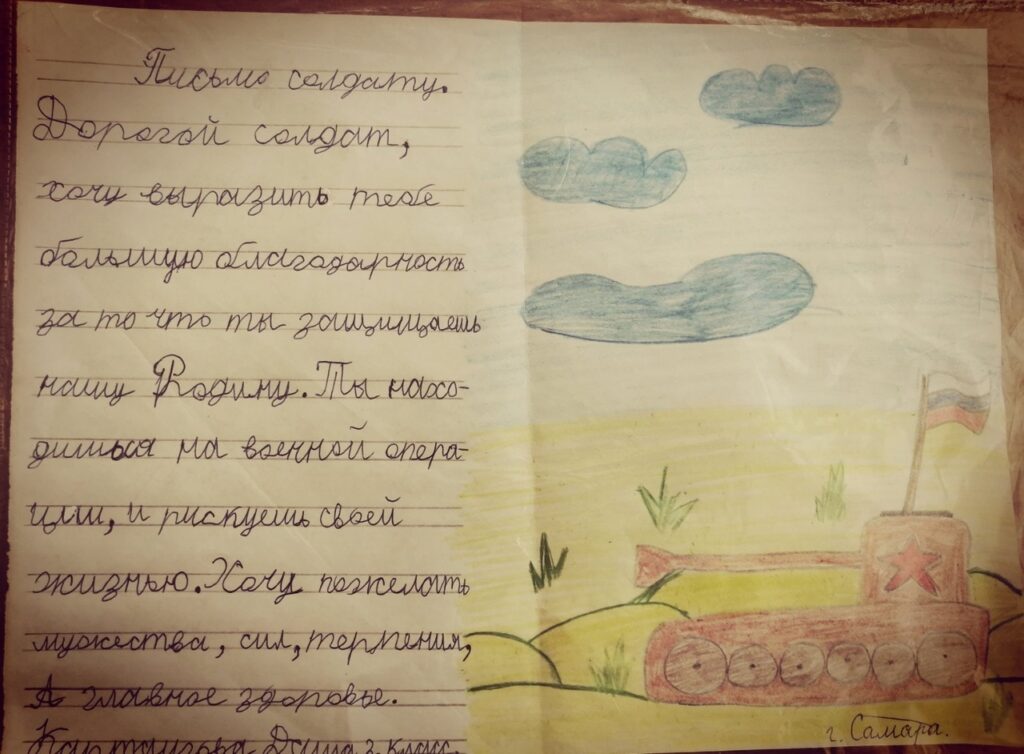 Письмо солдату.
Дорогой солдат,
хочу выразить тебе
большую благодарность
за то что ты защищаешь
нашу Родину. Ты нахо-
дишься на военной опера-
ции, и рискуешь своей
жизнью. Хочу пожелать
мужества, сил, терпения,
А главное здоровье.
Даша 2 класс.
г. Самара.